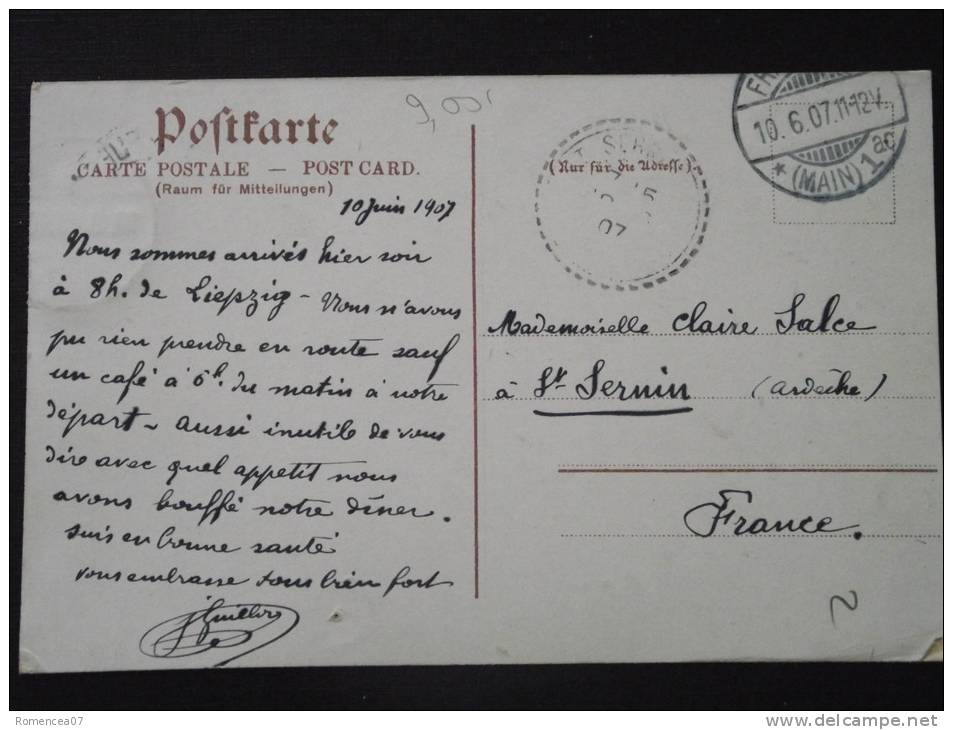 9,00
Postkarte
CARTE POSTALE — POST CARD.
(Raum für Mitteilungen)
10 Juin 1907
Nous sommes arrivés hier soir
à 8h. de Liepzig - Nous n'avons
pu rien prendre en route sauf
un café à 6h. du matin à notre
départ - aussi inutile de vous
dire avec quel appetit nous
avons bouffé notre dîner.
suis en bonne santé
vous embrasse tous bien fort
(Nur für die Adresse)
10.6.07.11-12V.
* (MAIN) 1 ac
07
Mademoiselle Claire Salce
à St. Sernin (ardèche)
France.
2
Romencea07
www.delcampe.net